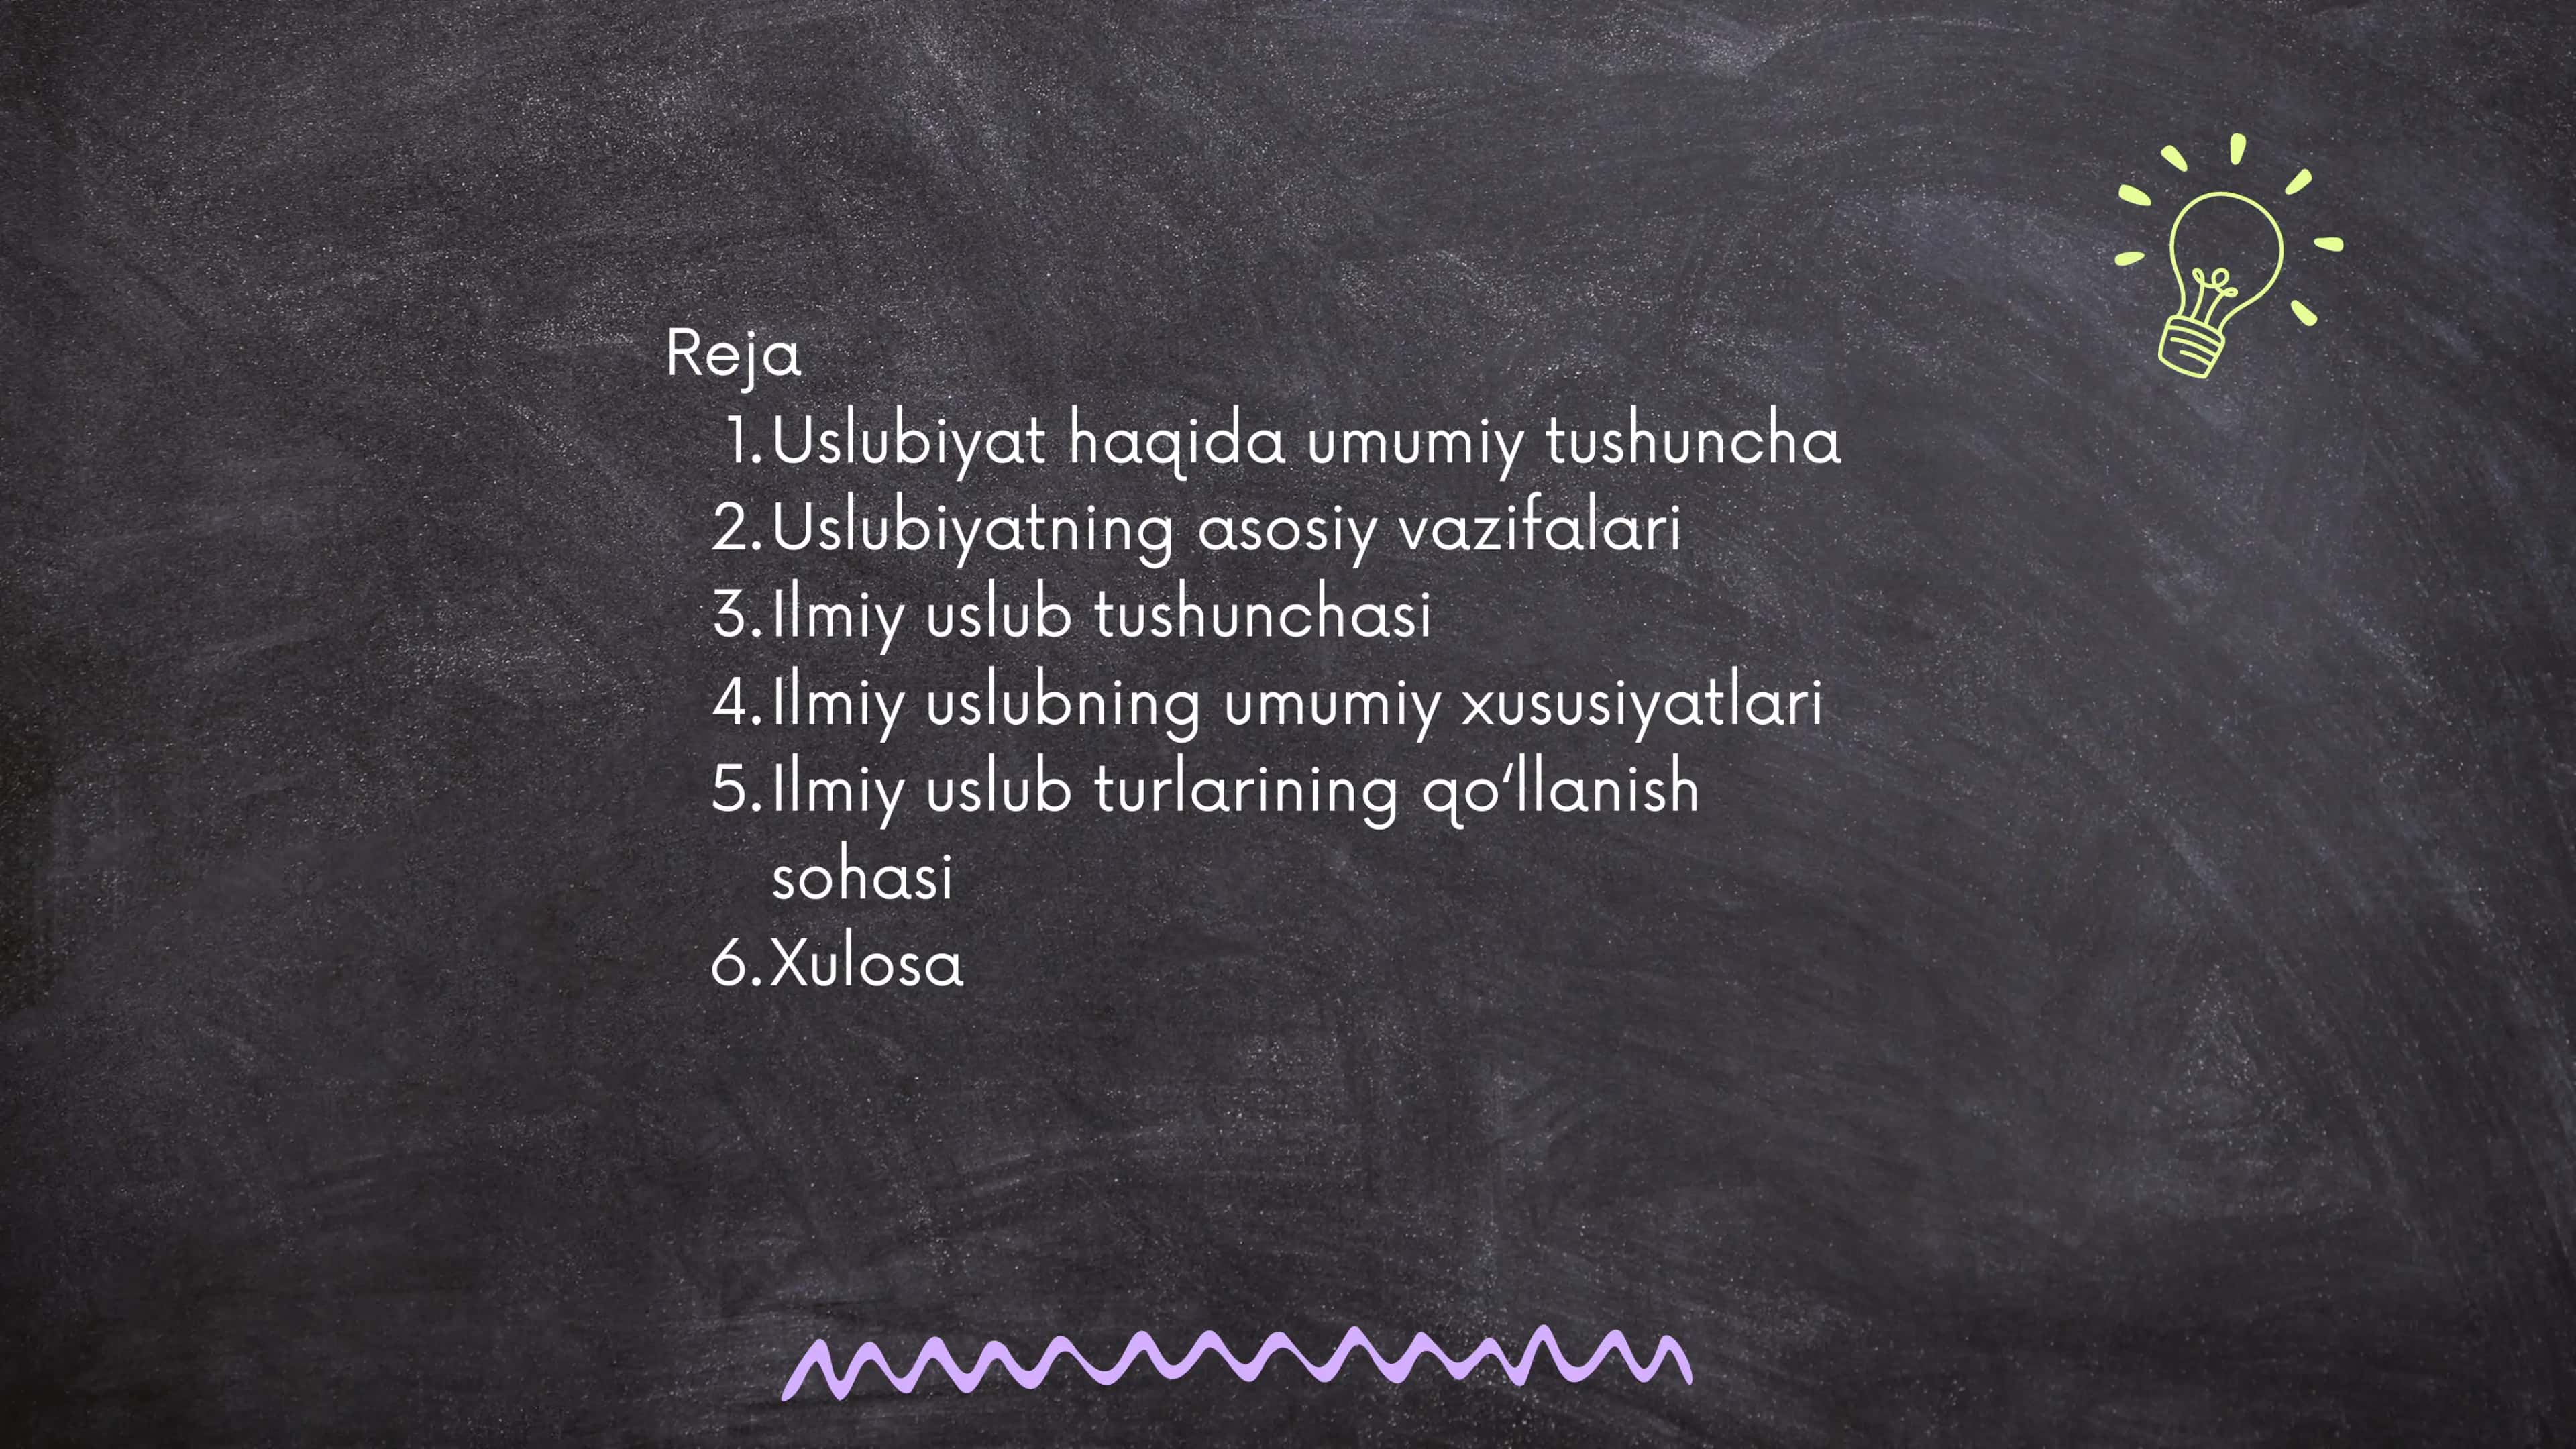 Reja
1. Uslubiyat haqida umumiy tushuncha
2. Uslubiyatning asosiy vazifalari
3. Ilmiy uslub tushunchasi
4. Ilmiy uslubning umumiy xususiyatlari
5. Ilmiy uslub turlarining qo‘llanish
sohasi
6. Xulosa